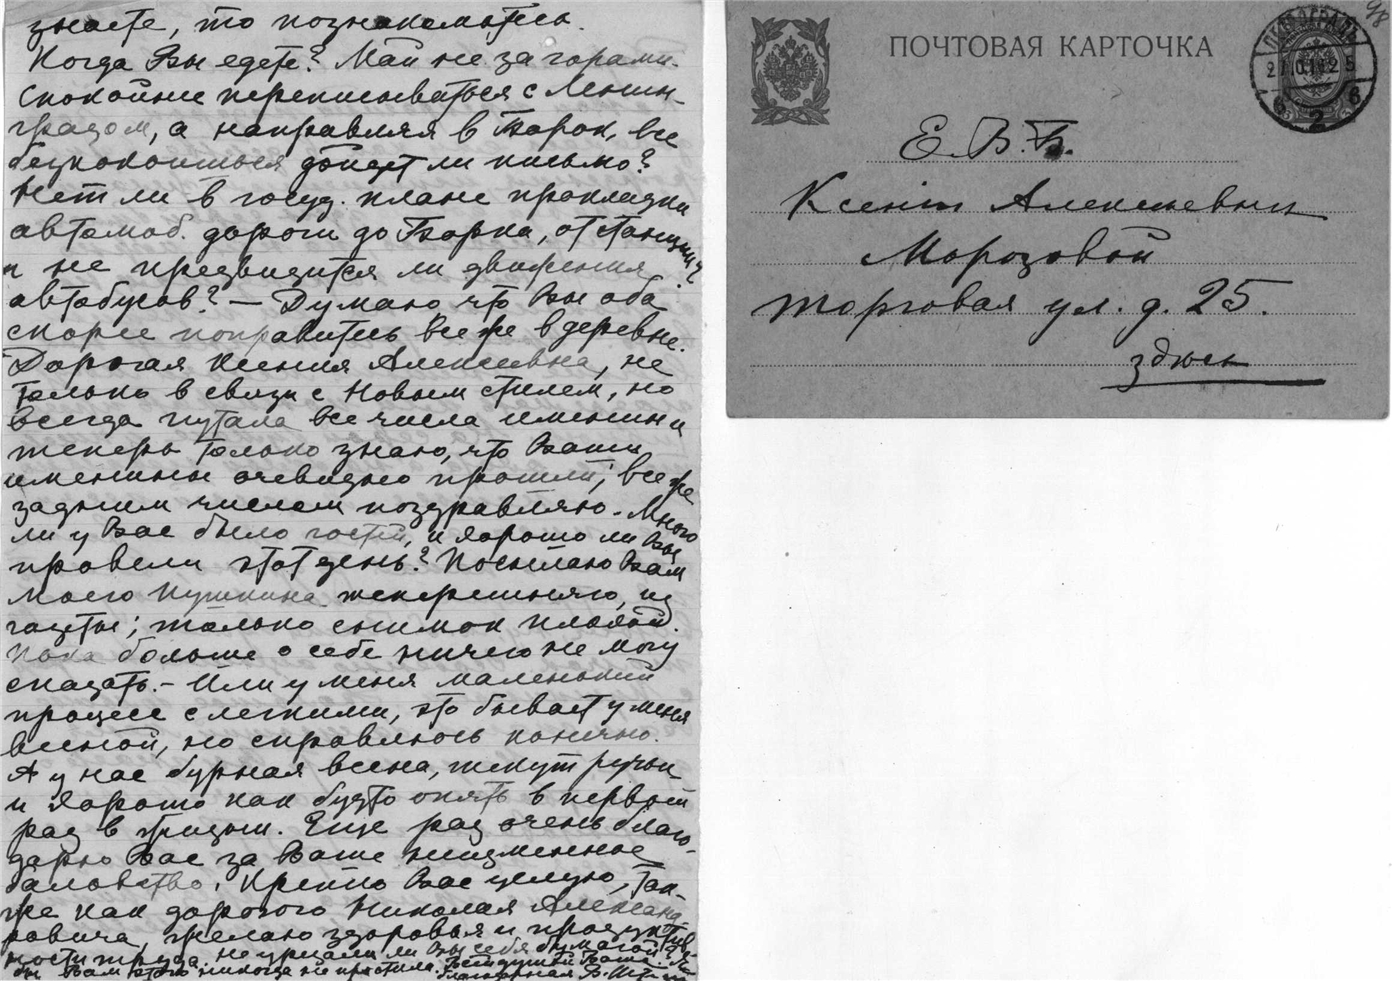 знаете, то познакомьтесь.
Когда Вы едете? Май не за горами.
Спокойнее переписываться с Ленин-
градом, а направляя в Борок, все
безпокоишься дойдет ли письмо?
Нет ли в госуд. плане прокладки
автомоб. дороги до Борка, от станции?
и не предвидится ли движения
автобусов? — Думаю что Вы оба
скорее поправитесь все же в деревне.
Дорогая Ксения Алексеевна, не
только в связи с Новым стилем, но
всегда путала все числа именин и
теперь только знаю, что Ваши
именины очевидно прошли; все же
задним числом поздравляю. Много
ли у Вас было гостей, и хорошо ли Вы
провели этот день? Посылаю Вам
моего Пушкина теперешняго, из
газеты; только снимок плохой.
Пока больше о себе ничего не могу
сказать. – Или у меня маленький
процесс с легкими, это бывает у меня
весной, но справлюсь конечно.
А у нас бурная весна, текут ручьи
и хорошо как будто опять в первый
раз в жизни. Еще раз очень благо-
дарю Вас за Ваше неизменное
баловство. Крепко Вас целую, так-
же как дорогого Николая Александ-
ровича, желаю здоровья и продуктив-
ности труда. Не урезали ли Вы себя бумагой? Я
бы Вам этого никогда не простила. Всей душой Ваша
благодарная В.
ПОЧТОВАЯ КАРТОЧКА
98
ПЕТРОГРАДЪ
2
Е. В. Б.
Ксеніи Алексеевны
Морозовой
Торговая ул. д. 25.
здесь